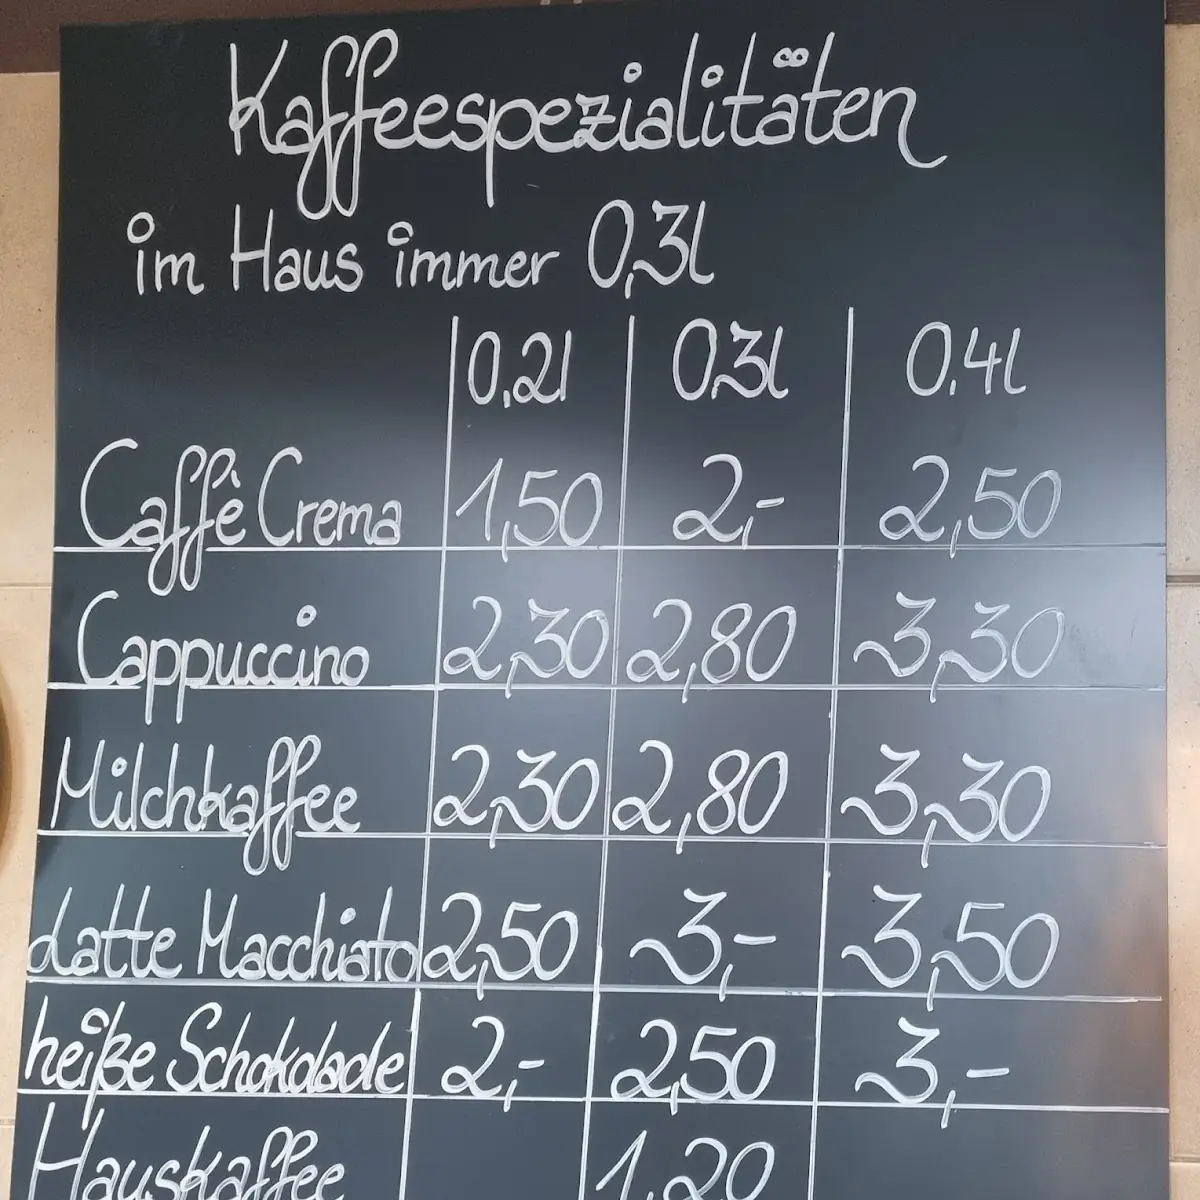 Kaffeespezialitäten
im Haus immer 0,3l
0,2l 0,3l 0,4l
Caffè Crema 1,50 2,- 2,50
Cappuccino 2,30 2,80 3,30
Milchkaffee 2,30 2,80 3,30
Latte Macchiato 2,50 3,- 3,50
heiße Schokolade 2,- 2,50 3,-
Hauskaffee 1,20